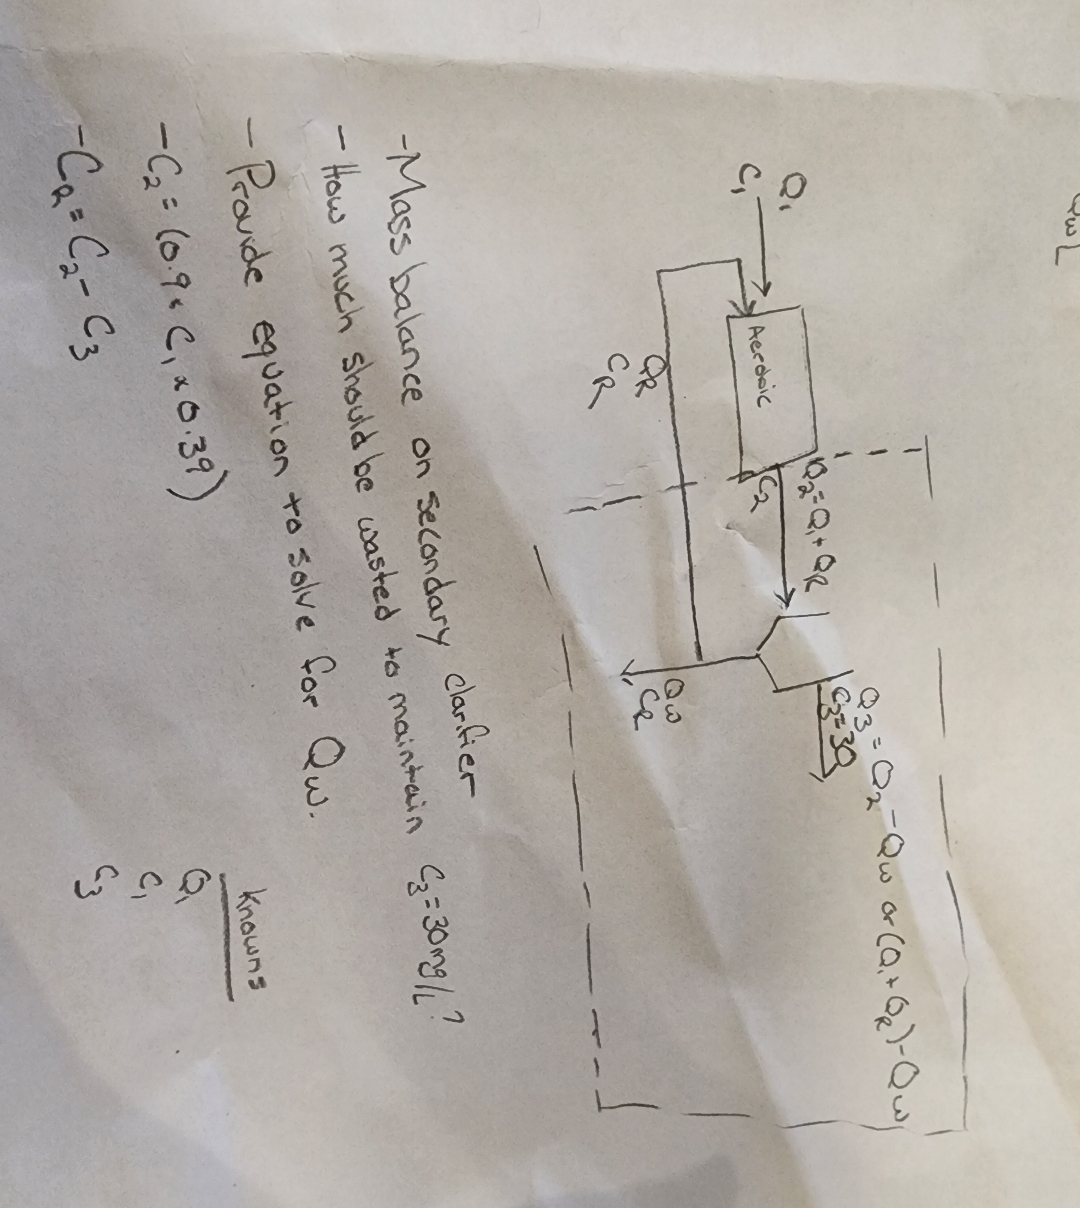 Qw
Q₁
C₁
Aerobic
Q₂ = Q₁ + QR
C₂
Q3 = Q₂ - Qw or (Q₁ + QR) - Qw
C3 = 30
QR
CR
Qw
CR
-Mass balance on secondary clarifier
- How much should be wasted to maintain C3 = 30mg/L?
- Provide equation to solve for Qw.
- C₂ = (0.9 × C₁ × 0.39)
- CR = C₂ - C3
Knowns
Q₁
C₁
C3